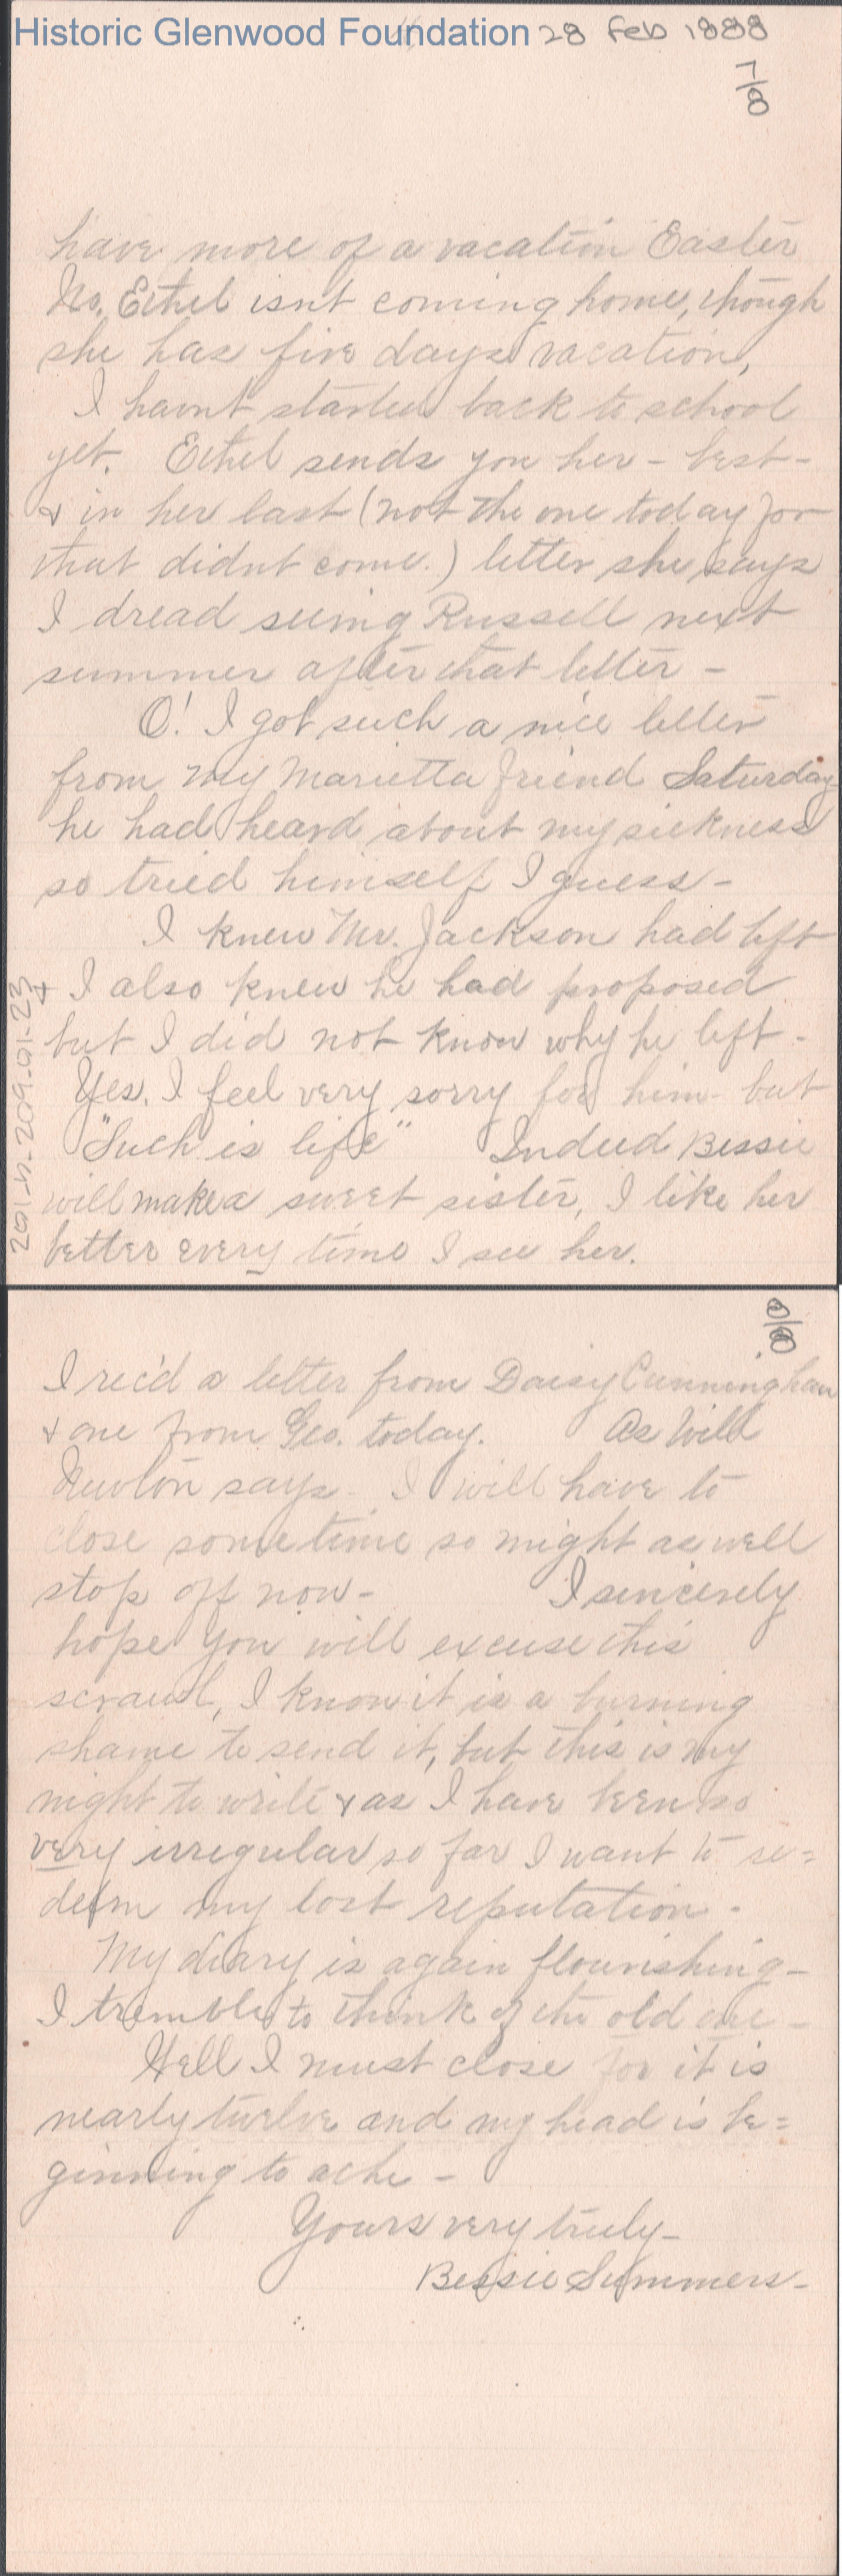 Historic Glenwood Foundation 28 Feb 1888
7/8
have more of a vacation Easter
No, Ethel isnt coming home, though
she has five days vacation,
I havnt started back to school
yet. Ethel sends you her - best -
& in her last (not the one today for
that didnt come.) letter she says
I dread seeing Russell next
summer after that letter -
O! I got such a nice letter
from my Marietta friend Saturday
he had heard about my sickness
so tried himself I guess -
I knew Mr. Jackson had left
& I also knew he had proposed
but I did not know why he left -
Yes, I feel very sorry for him - but
"Such is life" Indeed Bessie
will make a sweet sister, I like her
better every time I see her.
201-h-209-01-23
8/8
I rec'd a letter from Daisy Cunningham
& one from Geo. today. As Will
Newton says - I will have to
close sometime so might as well
stop off now - I sincerely
hope you will excuse this
scrawl, I know it is a burning
shame to send it, but this is my
night to write & as I have been so
very irregular so far I want to re=
deem my lost reputation -
My diary is again flourishing -
I tremble to think of the old one -
Well I must close for it is
nearly twelve and my head is be=
ginning to ache -
Yours very truly -
Bessie Summers -